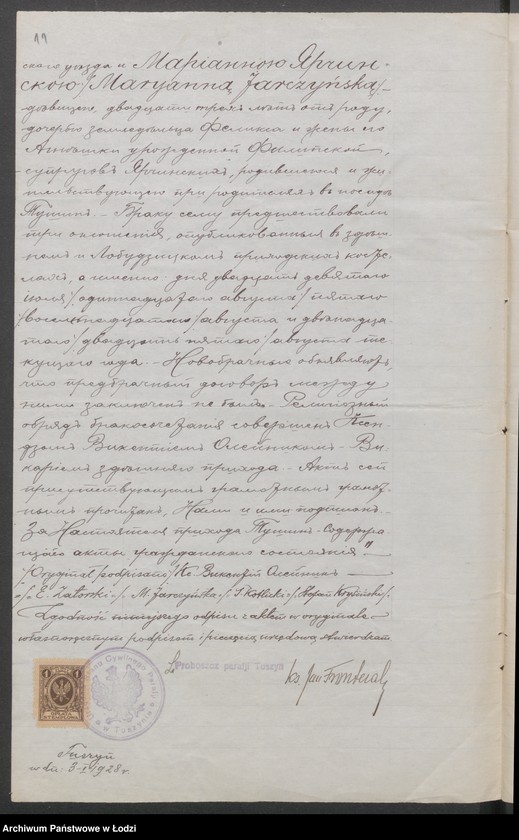 19
скаго уѣзда и Маріанною Ярчин-
скою /Maryanna Jarczyńska/
дѣвицею, двадцати трехъ лѣтъ отъ роду,
дочерью земледѣльца Феликса и жены его
Агнешки урожденной Филипской,
супруговъ Ярчинскихъ, родившеюся и жи-
тельствующею при родителяхъ въ посадѣ
Тушинъ. - Браку сему предшествовали
три оглашенія, опубликованныя въ здѣш-
немъ и Лобудзицкомъ приходскихъ костё-
лахъ, а именно: дня двадцать девятаго
іюля /одиннадцатаго августа/ пятаго
/восемнадцатаго/ августа и двѣнадца-
таго /двадцать пятаго/ августа те-
кущаго года. - Новобрачные объявляютъ,
что предбрачный договоръ между
ними заключенъ не былъ. Религіозный
обрядъ бракосочетанія совершенъ Ксен-
дзомъ Викентіемъ Олейникомъ - Ви-
каріемъ здѣшняго прихода. - Актъ сей
присутствующимъ грамотнымъ
прочитанъ, Нами и ими подписанъ.
За Настоятеля прихода Тушинъ - Содержа-
щій акты гражданскаго состоянія"
/Oryginał podpisano/ Кс. Викентій Олейникъ
/E. Zatorski /M. Jarczyńska /
Zgodność niniejszego odpisu z aktem w oryginale
własnoręcznym podpisem i pieczęcią urzędową stwierdzam
Proboszcz parafji Tuszyn
ks Jan
1 1
OPŁATA
STEMPLOWA
Tuszyn
w dn. 3-I 1928 r.
Archiwum Państwowe w Łodzi